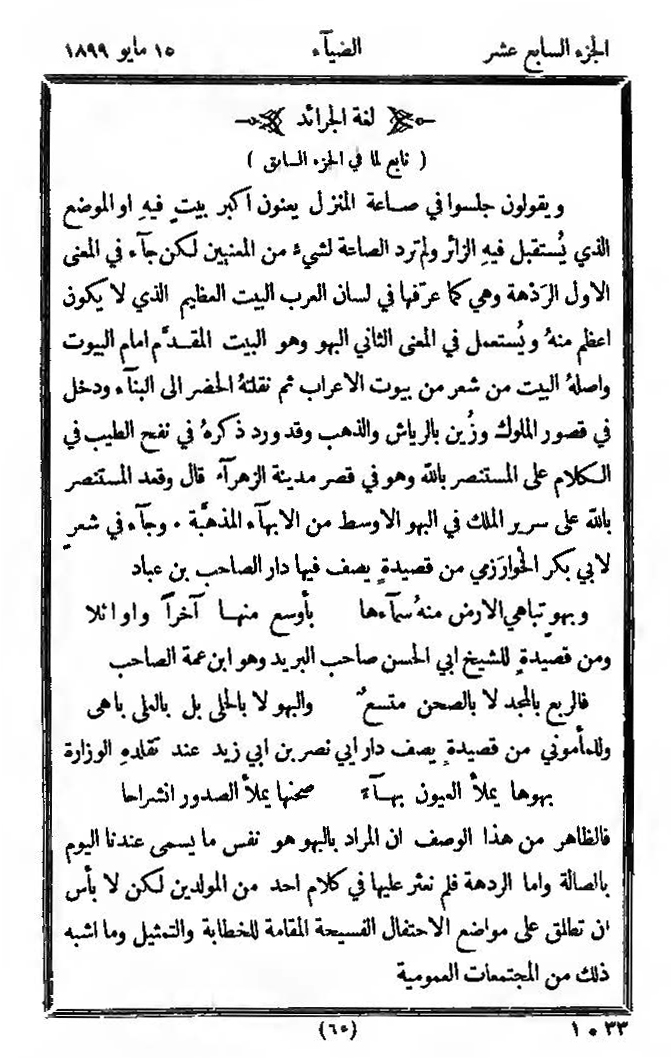 الجزء السابع عشر الضيآء ١٥ مايو ١٨٩٩
لغة الجرائد
( تابع لما في الجزء السابق )
ويقولون جلسوا في صاعة المنزل يعنون اكبر بيتٍ فيهِ او الموضع
الذي يُستقبل فيهِ الزائر ولم ترد الصاعة لشيءٍ من المعنيين لكن جآء في المعنى
الاول الرَدْهة وهي كما عرّفها في لسان العرب البيت العظيم الذي لا يكون
اعظم منهُ ويُستعمل في المعنى الثاني البهو وهو البيت المقدَّم امام البيوت
واصلهُ البيت من شعر من بيوت الاعراب ثم نقلتهُ الحضر الى البنآء ودخل
في قصور الملوك وزُين بالرياش والذهب وقد ورد ذكرهُ في نفح الطيب في
الكلام على المستنصر بالله وهو في قصر مدينة الزهرآء قال وقعد المستنصر
بالله على سرير الملك في البهو الاوسط من الابهآء المذهَّبة . وجآء في شعرٍ
لابي بكر الخوارَزمي من قصيدةٍ يصف فيها دار الصاحب بن عباد
وبهوٍ تباهي الارض منهُ سمآءها بأوسع منها آخراً واوائلا
ومن قصيدةٍ للشيخ ابي الحسن صاحب البريد وهو ابن عمة الصاحب
فالربع بالمجد لا بالصحن متسعٌ والبهو لا بالحلى بل بالعلى باهى
وللمأموني من قصيدةٍ يصف دار ابي نصر بن ابي زيد عند تقلدهِ الوزارة
بهوها يملأ العيون بهآءً صحنها يملأ الصدور انشراحا
فالظاهر من هذا الوصف ان المراد بالبهو هو نفس ما يسمى عندنا اليوم
بالصالة واما الردهة فلم نعثر عليها في كلام احد من المولدين لكن لا بأس
ان تطلق على مواضع الاحتفال الفسيحة المقامة للخطابة والتمثيل وما اشبه
ذلك من المجتمعات العمومية
(٦٥) ١٠٣٣